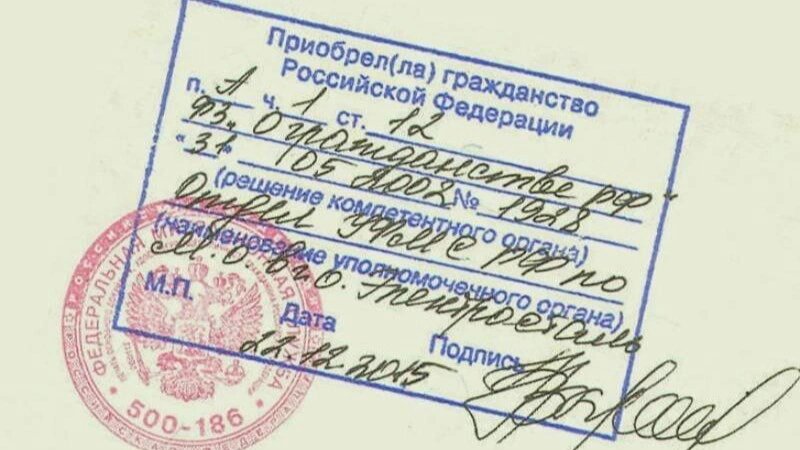 Приобрел(ла) гражданство
Российской Федерации
п. А ч. 1 ст. 12
ФЗ „О гражданстве РФ“
"31" 05 2002 № 1928
(решение компетентного органа)
Отдел УФМС РФ по
(наименование уполномоченного органа)
М.О. в г.о. Электросталь
М.П.
Дата
Подпись
22.12.2015
ФЕДЕРАЛЬНАЯ СЛУЖБА
500-186